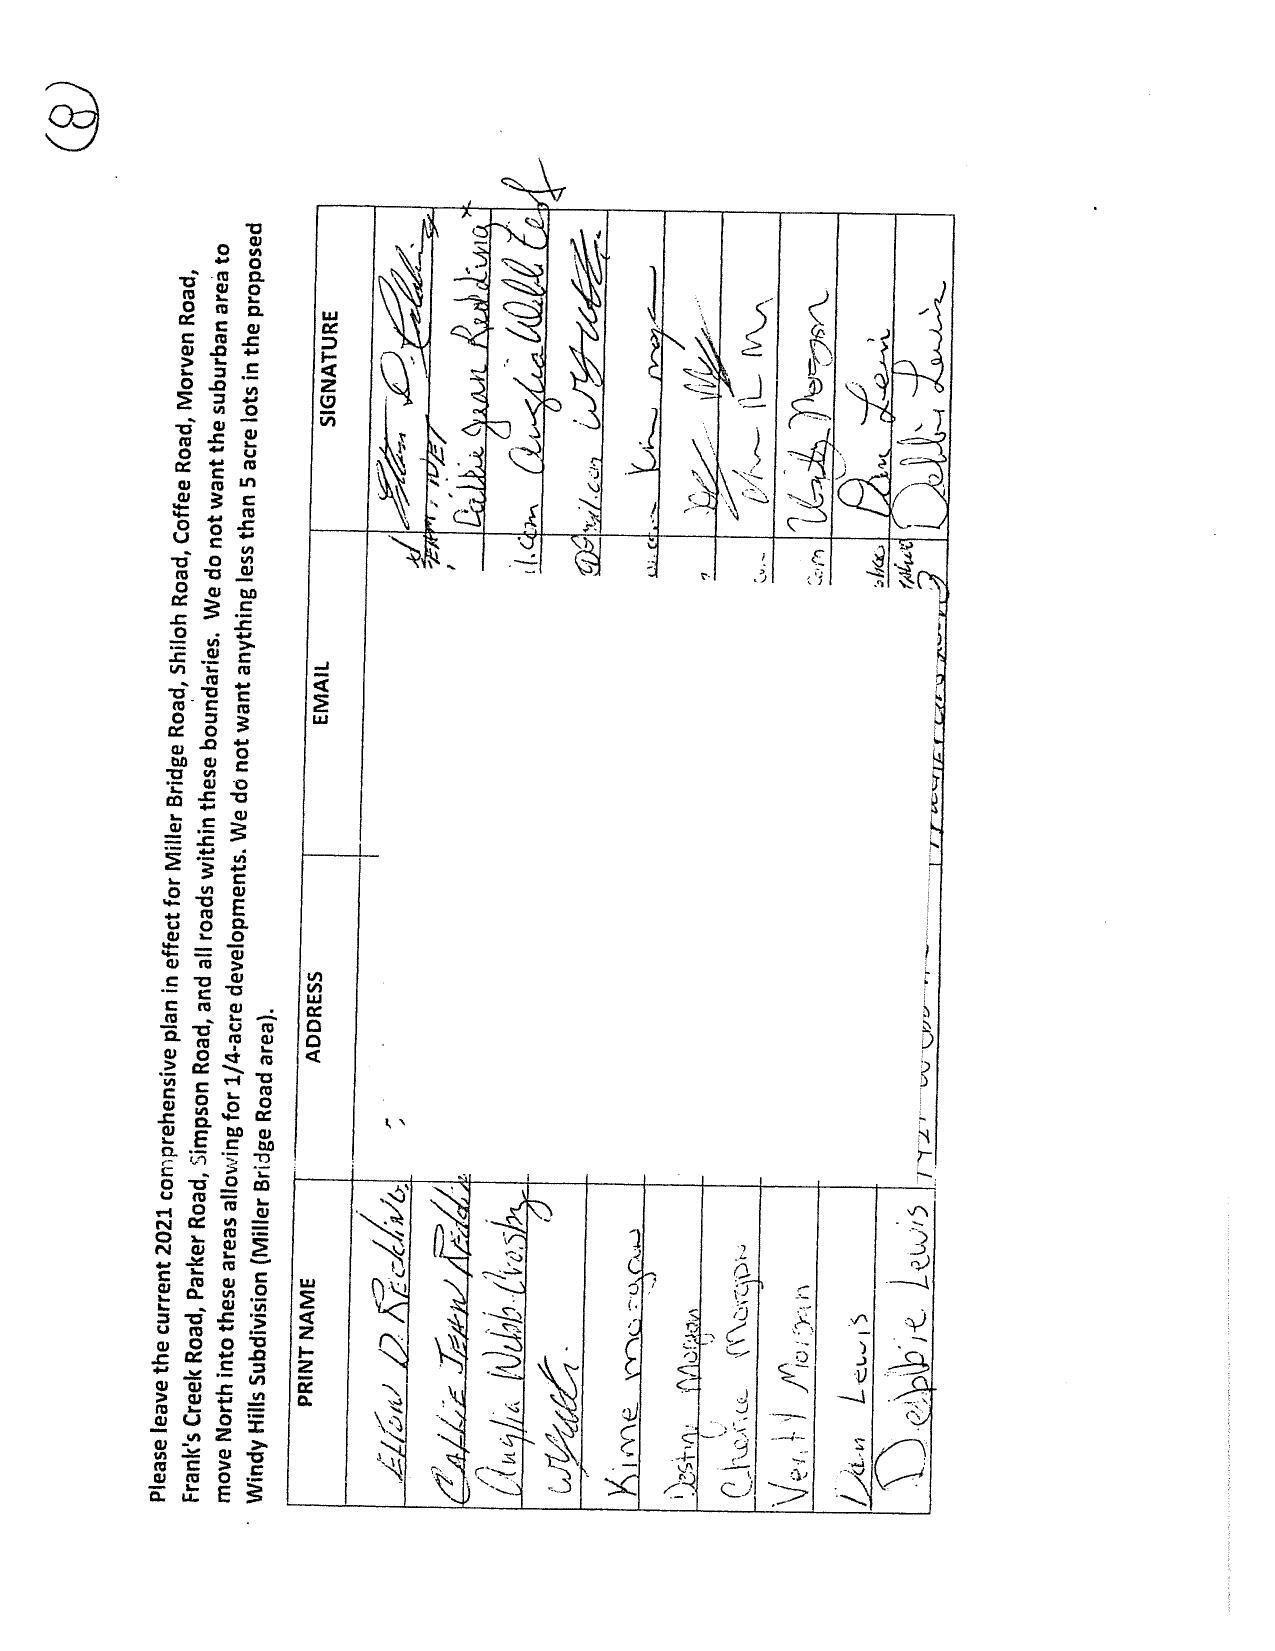 (8)
Please leave the current 2021 comprehensive plan in effect for Miller Bridge Road, Shiloh Road, Coffee Road, Morven Road,
Frank's Creek Road, Parker Road, Simpson Road, and all roads within these boundaries. We do not want the suburban area to
move North into these areas allowing for 1/4-acre developments. We do not want anything less than 5 acre lots in the proposed
Windy Hills Subdivision (Miller Bridge Road area).
PRINT NAME ADDRESS EMAIL SIGNATURE
Elton D. Redding
CALLIE JEAN Reddin Callie Jean Redding
Anglia Webb-Crosby il.com Anglia Webb
@gmail.com
Kime morgan Kim
Destiny Morgan
Cherice Morgan
Verity Morgan com Verity Morgan
Dan Lewis Dan Lewis
Debbie Lewis Debbie Lewis